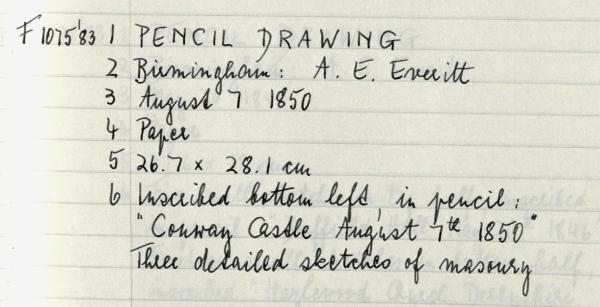 F 1075'83 1 PENCIL DRAWING
2 Birmingham: A. E. Everitt
3 August 7 1850
4 Paper
5 26.7 x 28.1 cm
6 Inscribed bottom left, in pencil:
"Conway Castle August 7th 1850"
Three detailed sketches of masonry